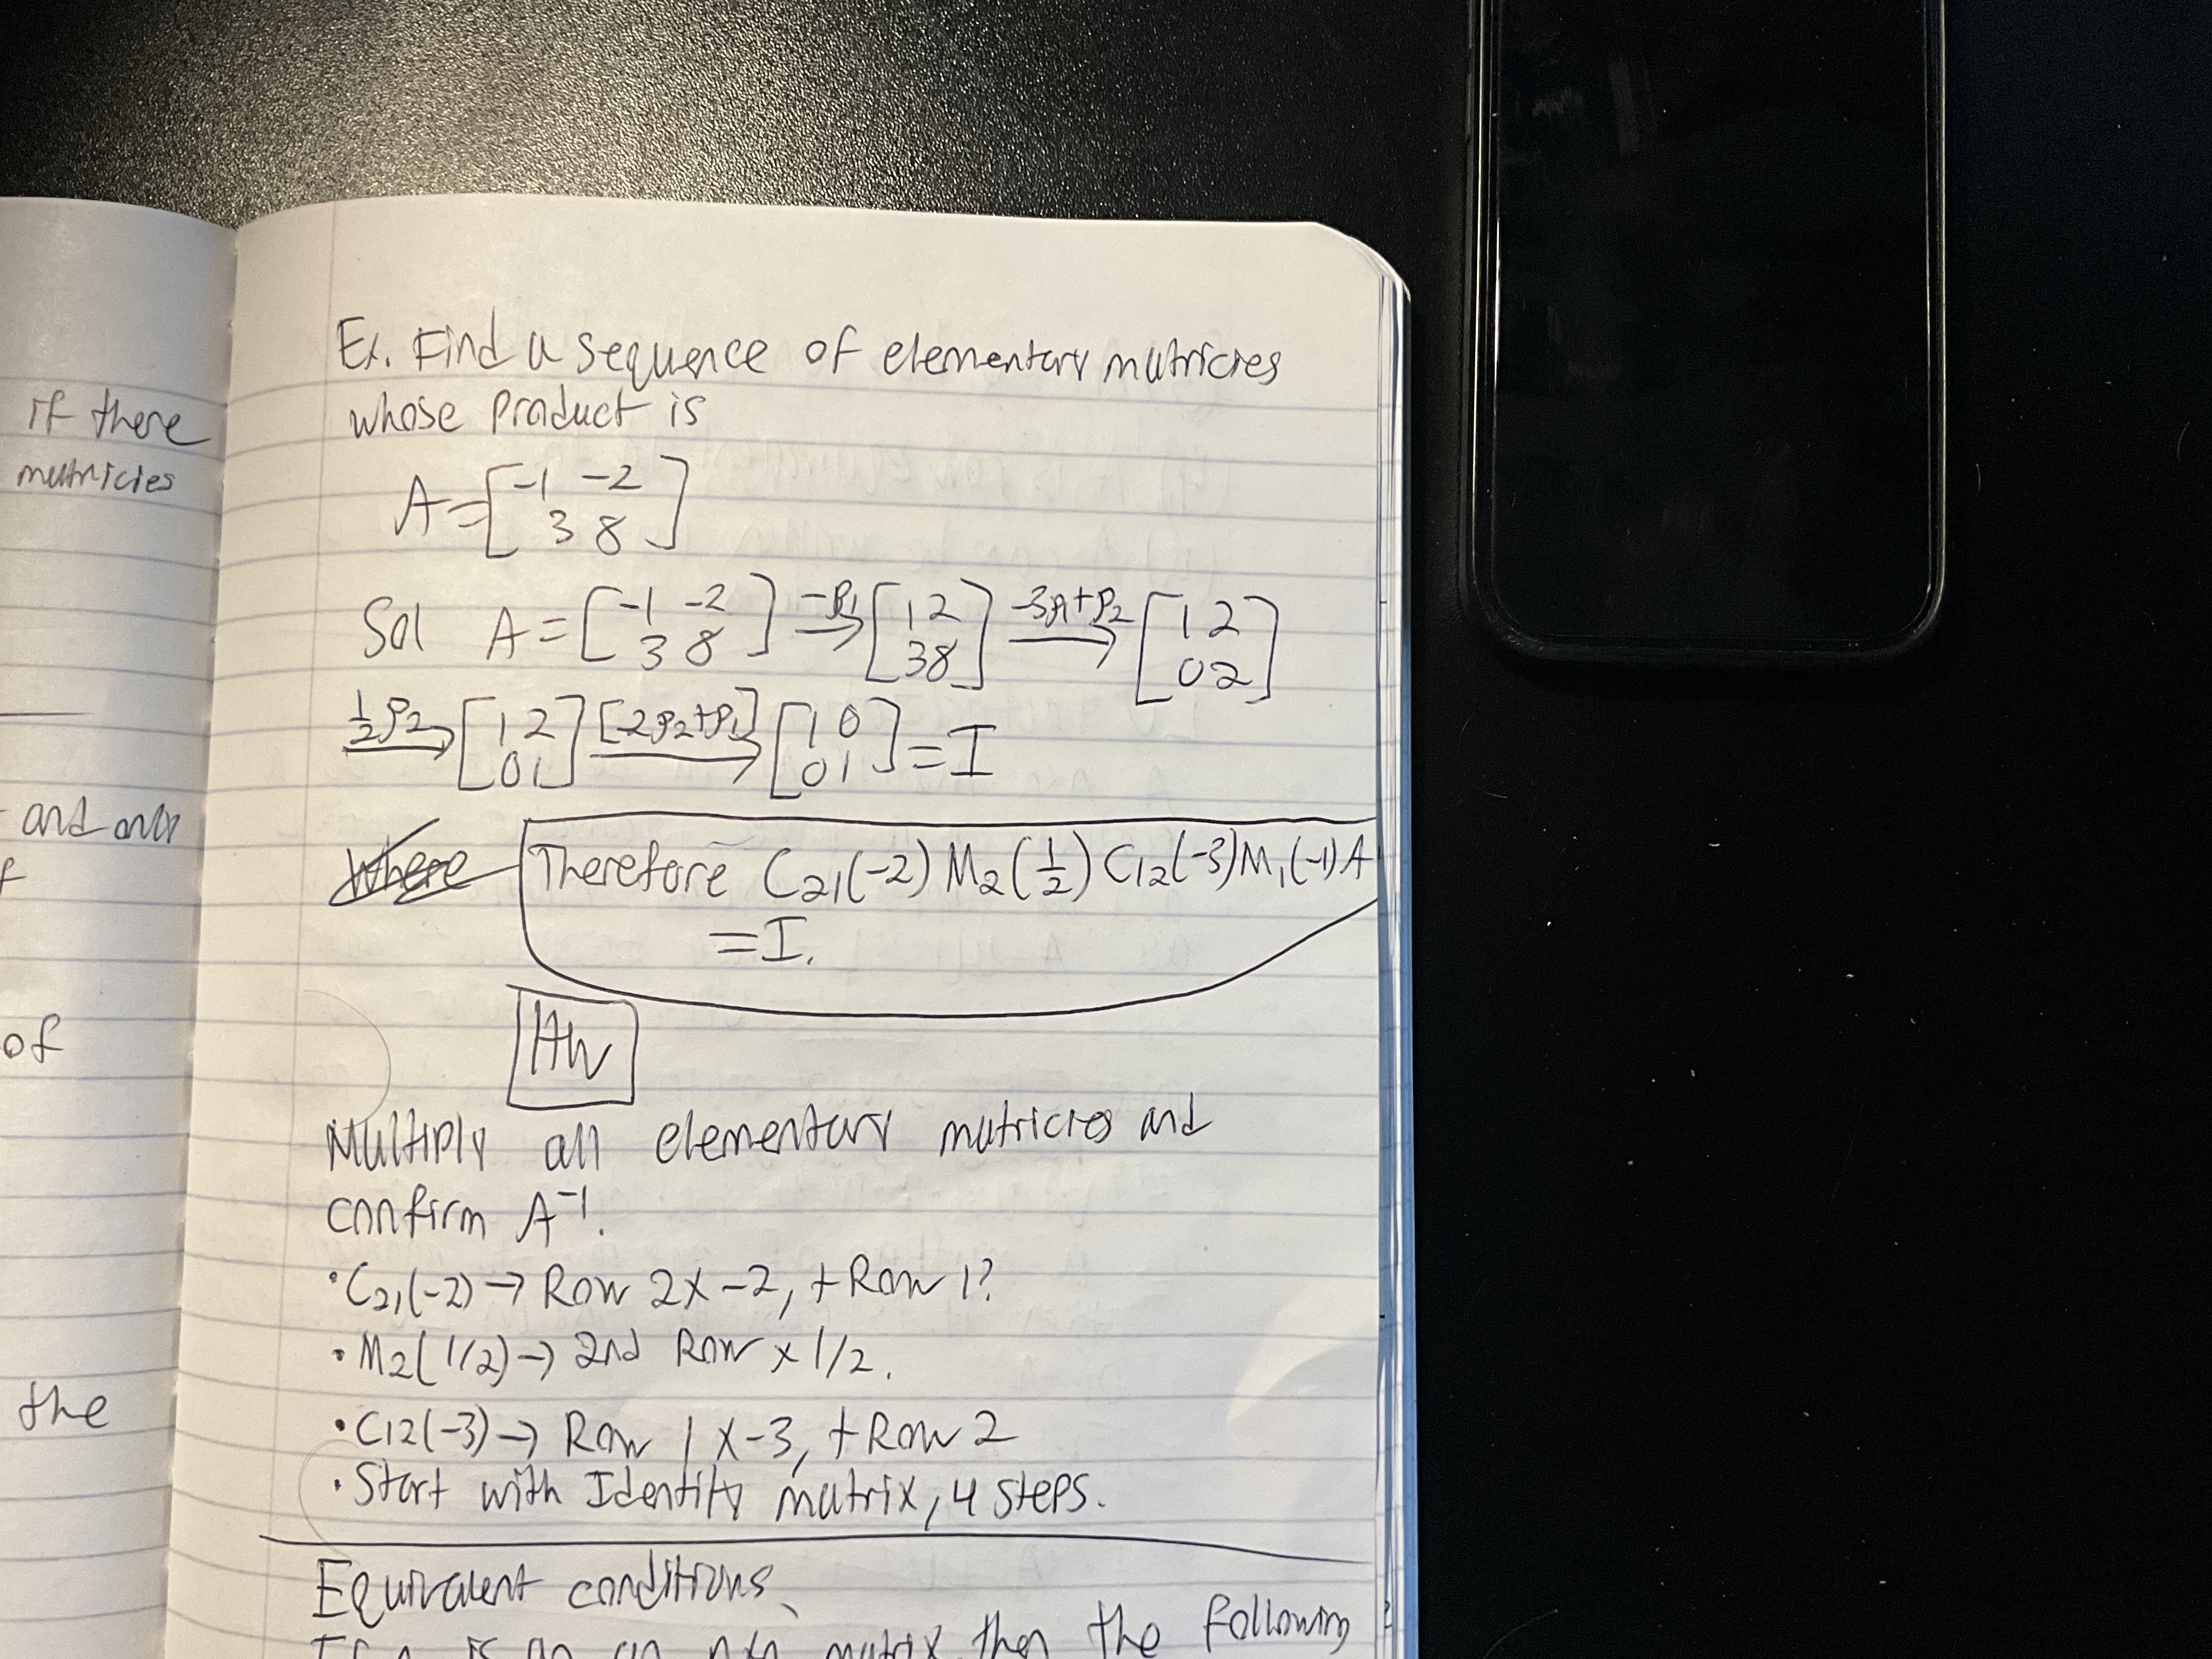 if there
matricies
and only
of
the
Ex. Find a sequence of elementary matricies
whose product is
A = [-1 -2
3 8]
Sol A = [-1 -2
3 8] -ρ1→ [1 2
3 8] -3ρ1+ρ2→ [1 2
0 2]
½ρ2→ [1 2
0 1] [-2ρ2+ρ1]→ [1 0
0 1] = I
Where Therefore C21(-2) M2(½) C12(-3) M1(-1) A
= I.
HW
Multiply all elementary matricies and
confirm A⁻¹.
• C21(-2) → Row 2 x -2, + Row 1?
• M2(1/2) → 2nd Row x 1/2.
• C12(-3) → Row 1 x -3, + Row 2
• Start with Identity matrix, 4 steps.
Equivalent conditions
If A is an nxn matrix then the following